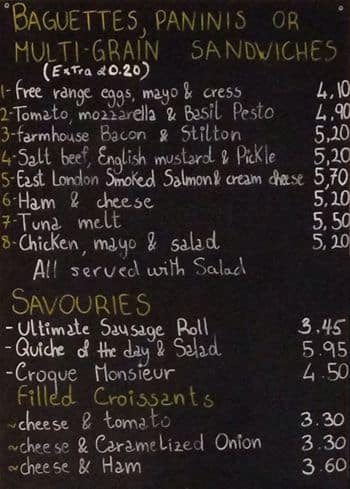 BAGUETTES, PANINIS OR
MULTI-GRAIN SANDWICHES
(Extra £0.20)
1- Free range eggs, mayo & cress 4,10
2- Tomato, mozzarella & Basil Pesto 4,90
3- Farmhouse Bacon & Stilton 5,20
4- Salt beef, English mustard & Pickle 5,20
5- East London Smoked Salmon & cream cheese 5,70
6- Ham & cheese 5,20
7- Tuna melt 5,50
8- Chicken, mayo & salad 5,20
All served with Salad
SAVOURIES
- Ultimate Sausage Roll 3.45
- Quiche of the day & Salad 5.95
- Croque Monsieur 4.50
Filled Croissants
~ cheese & tomato 3.30
~ cheese & Caramelized Onion 3.30
~ cheese & Ham 3.60